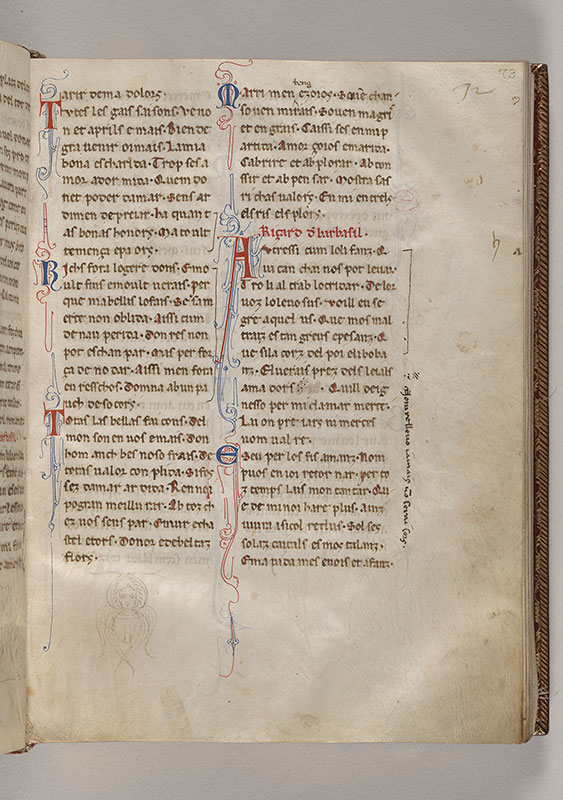 73
72
Garir de ma dolors.
Totes les gais saisons. Ve no
n et aprils e mais. Bien de
gra uenir oimais. La mia
bona escharida. Trop ses a
mor ador mida. Quem do
net poder damar. Sens ar
dimen de preiar. ha quan t
as bonas honors. Ma to ult
temença e paors.
Richs fora logere dons. Emo
ult fins emoult uerais. per
que ma bellas lofais. Se sa m
erce non oblida. Aissi cum
de nau perida. don res non
pot eschan par. Mas per for
ça de no dar. Aissi men fora
en resschos. domna ab un pa
uch de so cors.
Totas las bellas fai cons. del
mon son en uos emais. don
hom anch bes no so frais. de
totas ualor con plida.
sez damar ar dida.
pogran meillurar. Ab toz ch
ez uos sens par. Enuer echa
stel e tors. Donor e de beltaz
flors.
tong
Marri men e zoios. So que chan
so uen mirais. So uen magris
et en grais. Caissi ses en mi p
artida. Amor zoios e marida.
Cab rire et ab plorar. Ab con
sir et ab pen sar. Mostra sas
ri chas ualors. En mi entreh
els ris els plors.
Riçard de barbasil.
Atressi cum loli fanz. Q
ui can chai nos pot leuar.
Tro li al tr ab lo cridar. De lor
uoz lo leuo sus. Voill eu se
gre aquel us. Que mos mal
traiz es tan greus e pesanz. Q
ue sila corz del poi e la boba
nz. El uerais prez dels leials
ama dors Quill deig
nesso per mi clamar merce.
La on pre iars ni merces
nom ual re.
E seu per los fis amanz. Nom
puos en ioi retor nar. per to
z temps lais mon cantar. Qu
e de mi no i hare plus. Ainz
uiurai si col reclus. Sol ses
solaz cui tils es mos talanz.
E ma uida mes enois et afanz.